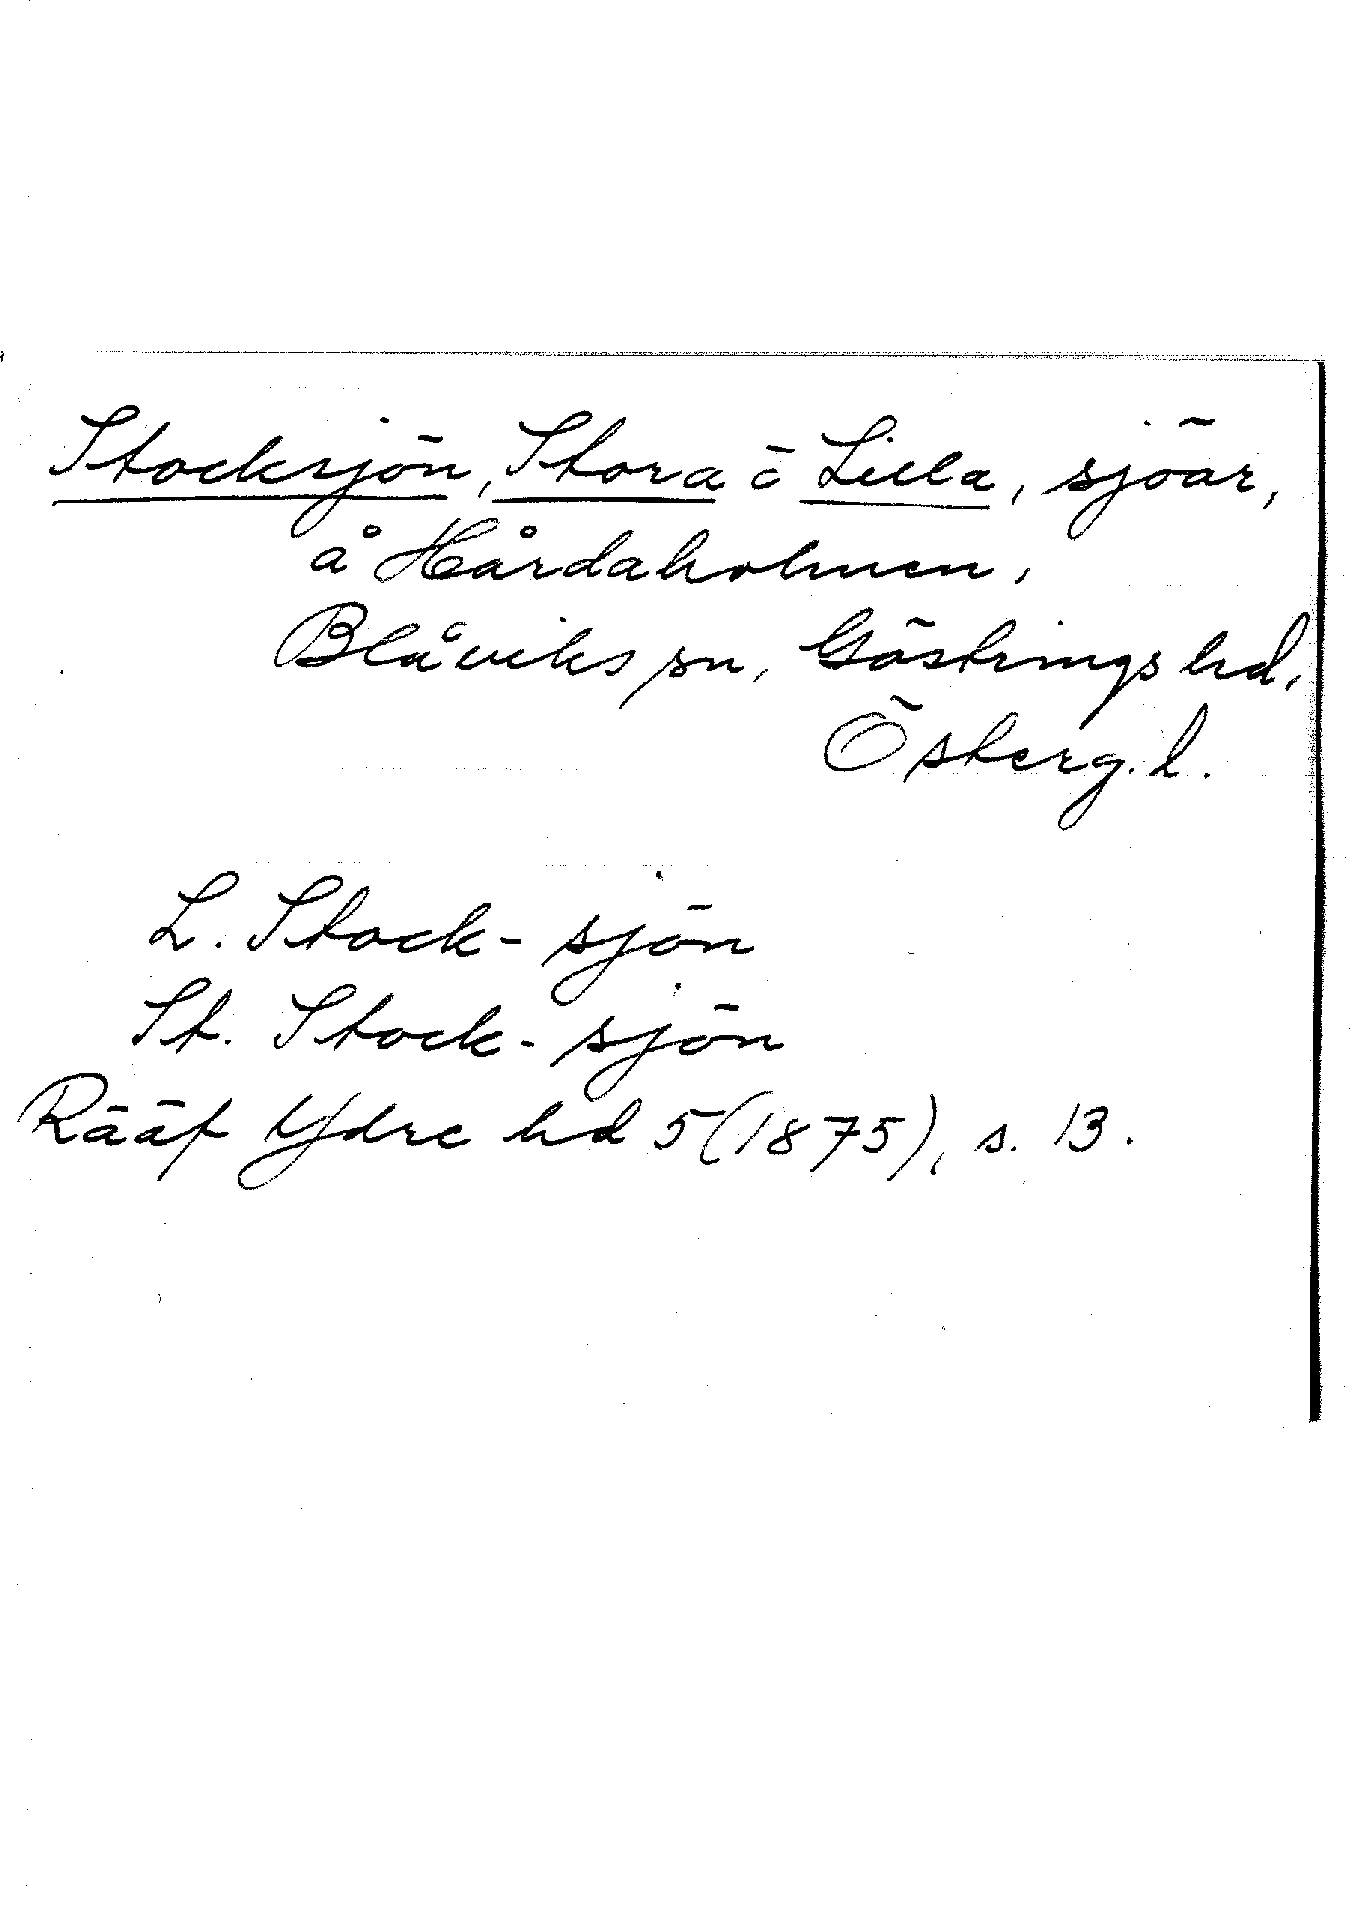 Stocksjön, Stora o Lilla, sjöar,
å Hårdaholmen,
Blåviks sn, Göstrings hd,
Österg. l.
L. Stock-sjön
St. Stock-sjön
Rääf Ydre hd 5 (1875), s. 13.